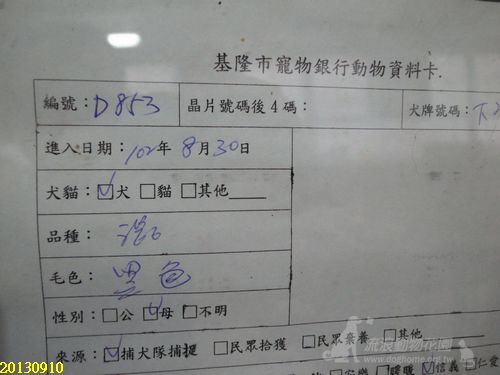 基隆市寵物銀行動物資料卡
編號：D853 晶片號碼後4碼： 犬牌號碼：
進入日期：102年8月30日
犬貓：☑犬 □貓 □其他
品種：混
毛色：黑色
性別：□公 ☑母 □不明
來源：☑捕犬隊捕捉 □民眾拾獲 □民眾棄養 □其他
□安樂 □暖暖 ☑信義 □仁愛
流浪動物花園
www.doghome.org.tw
20130910